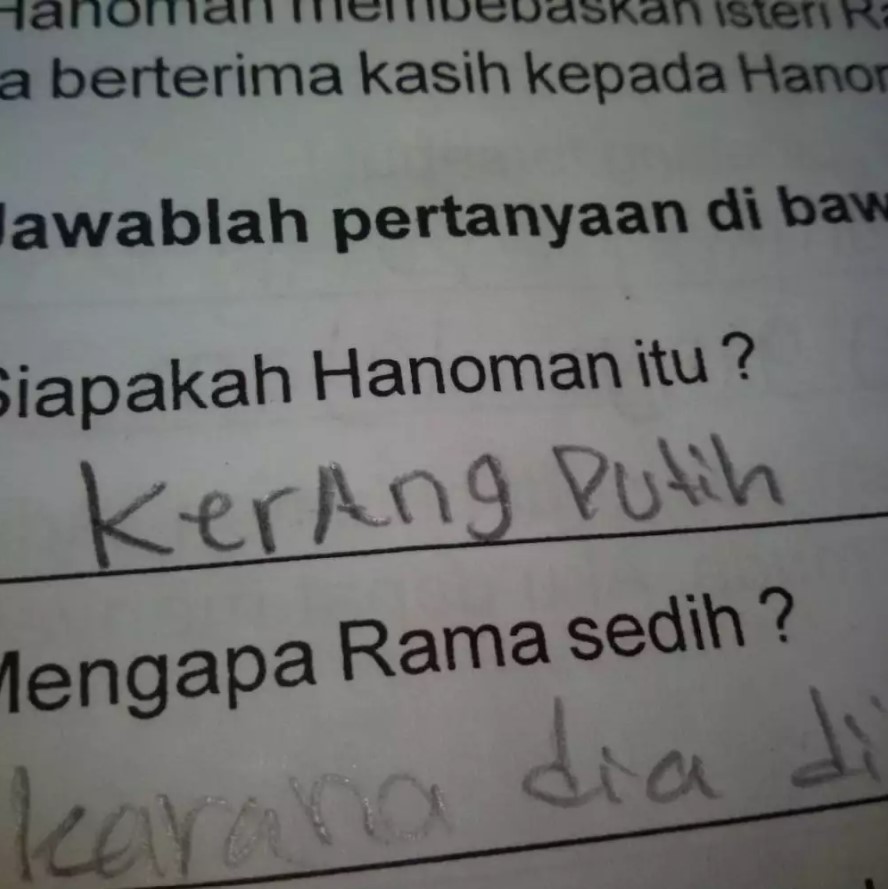 Hanoman membebaskan isteri Ra
a berterima kasih kepada Hanom
Jawablah pertanyaan di baw
Siapakah Hanoman itu ?
kerAng Putih
Mengapa Rama sedih ?
karana dia di